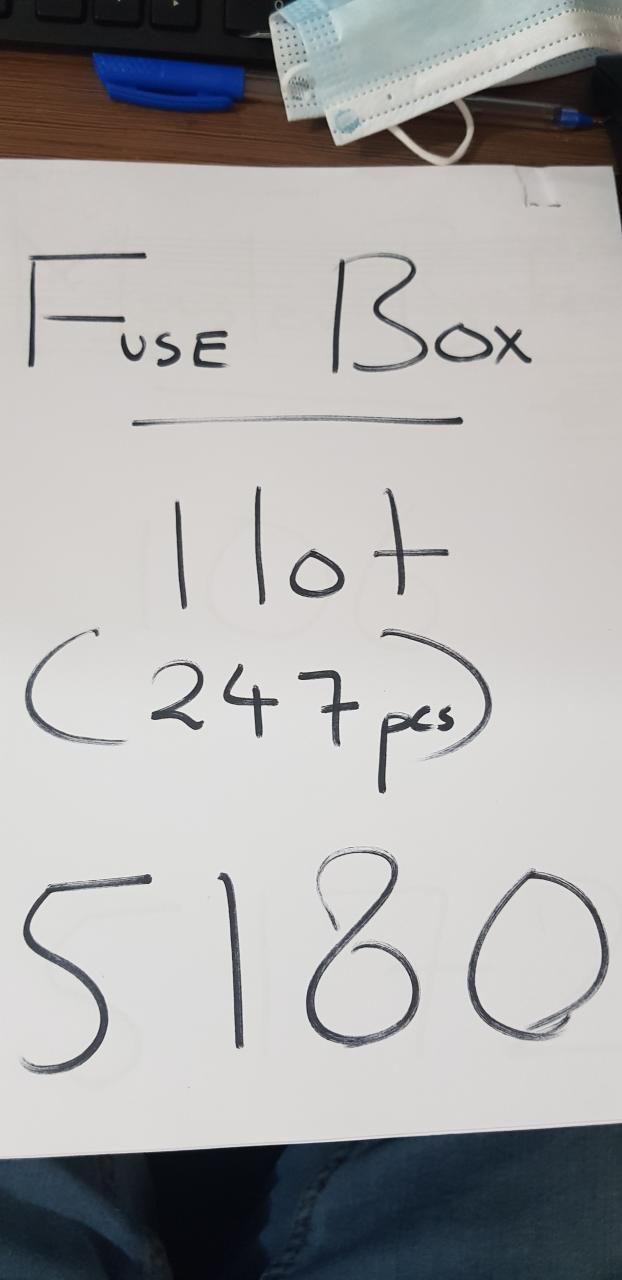 FUSE BOX
1 lot
(247 pcs)
5180